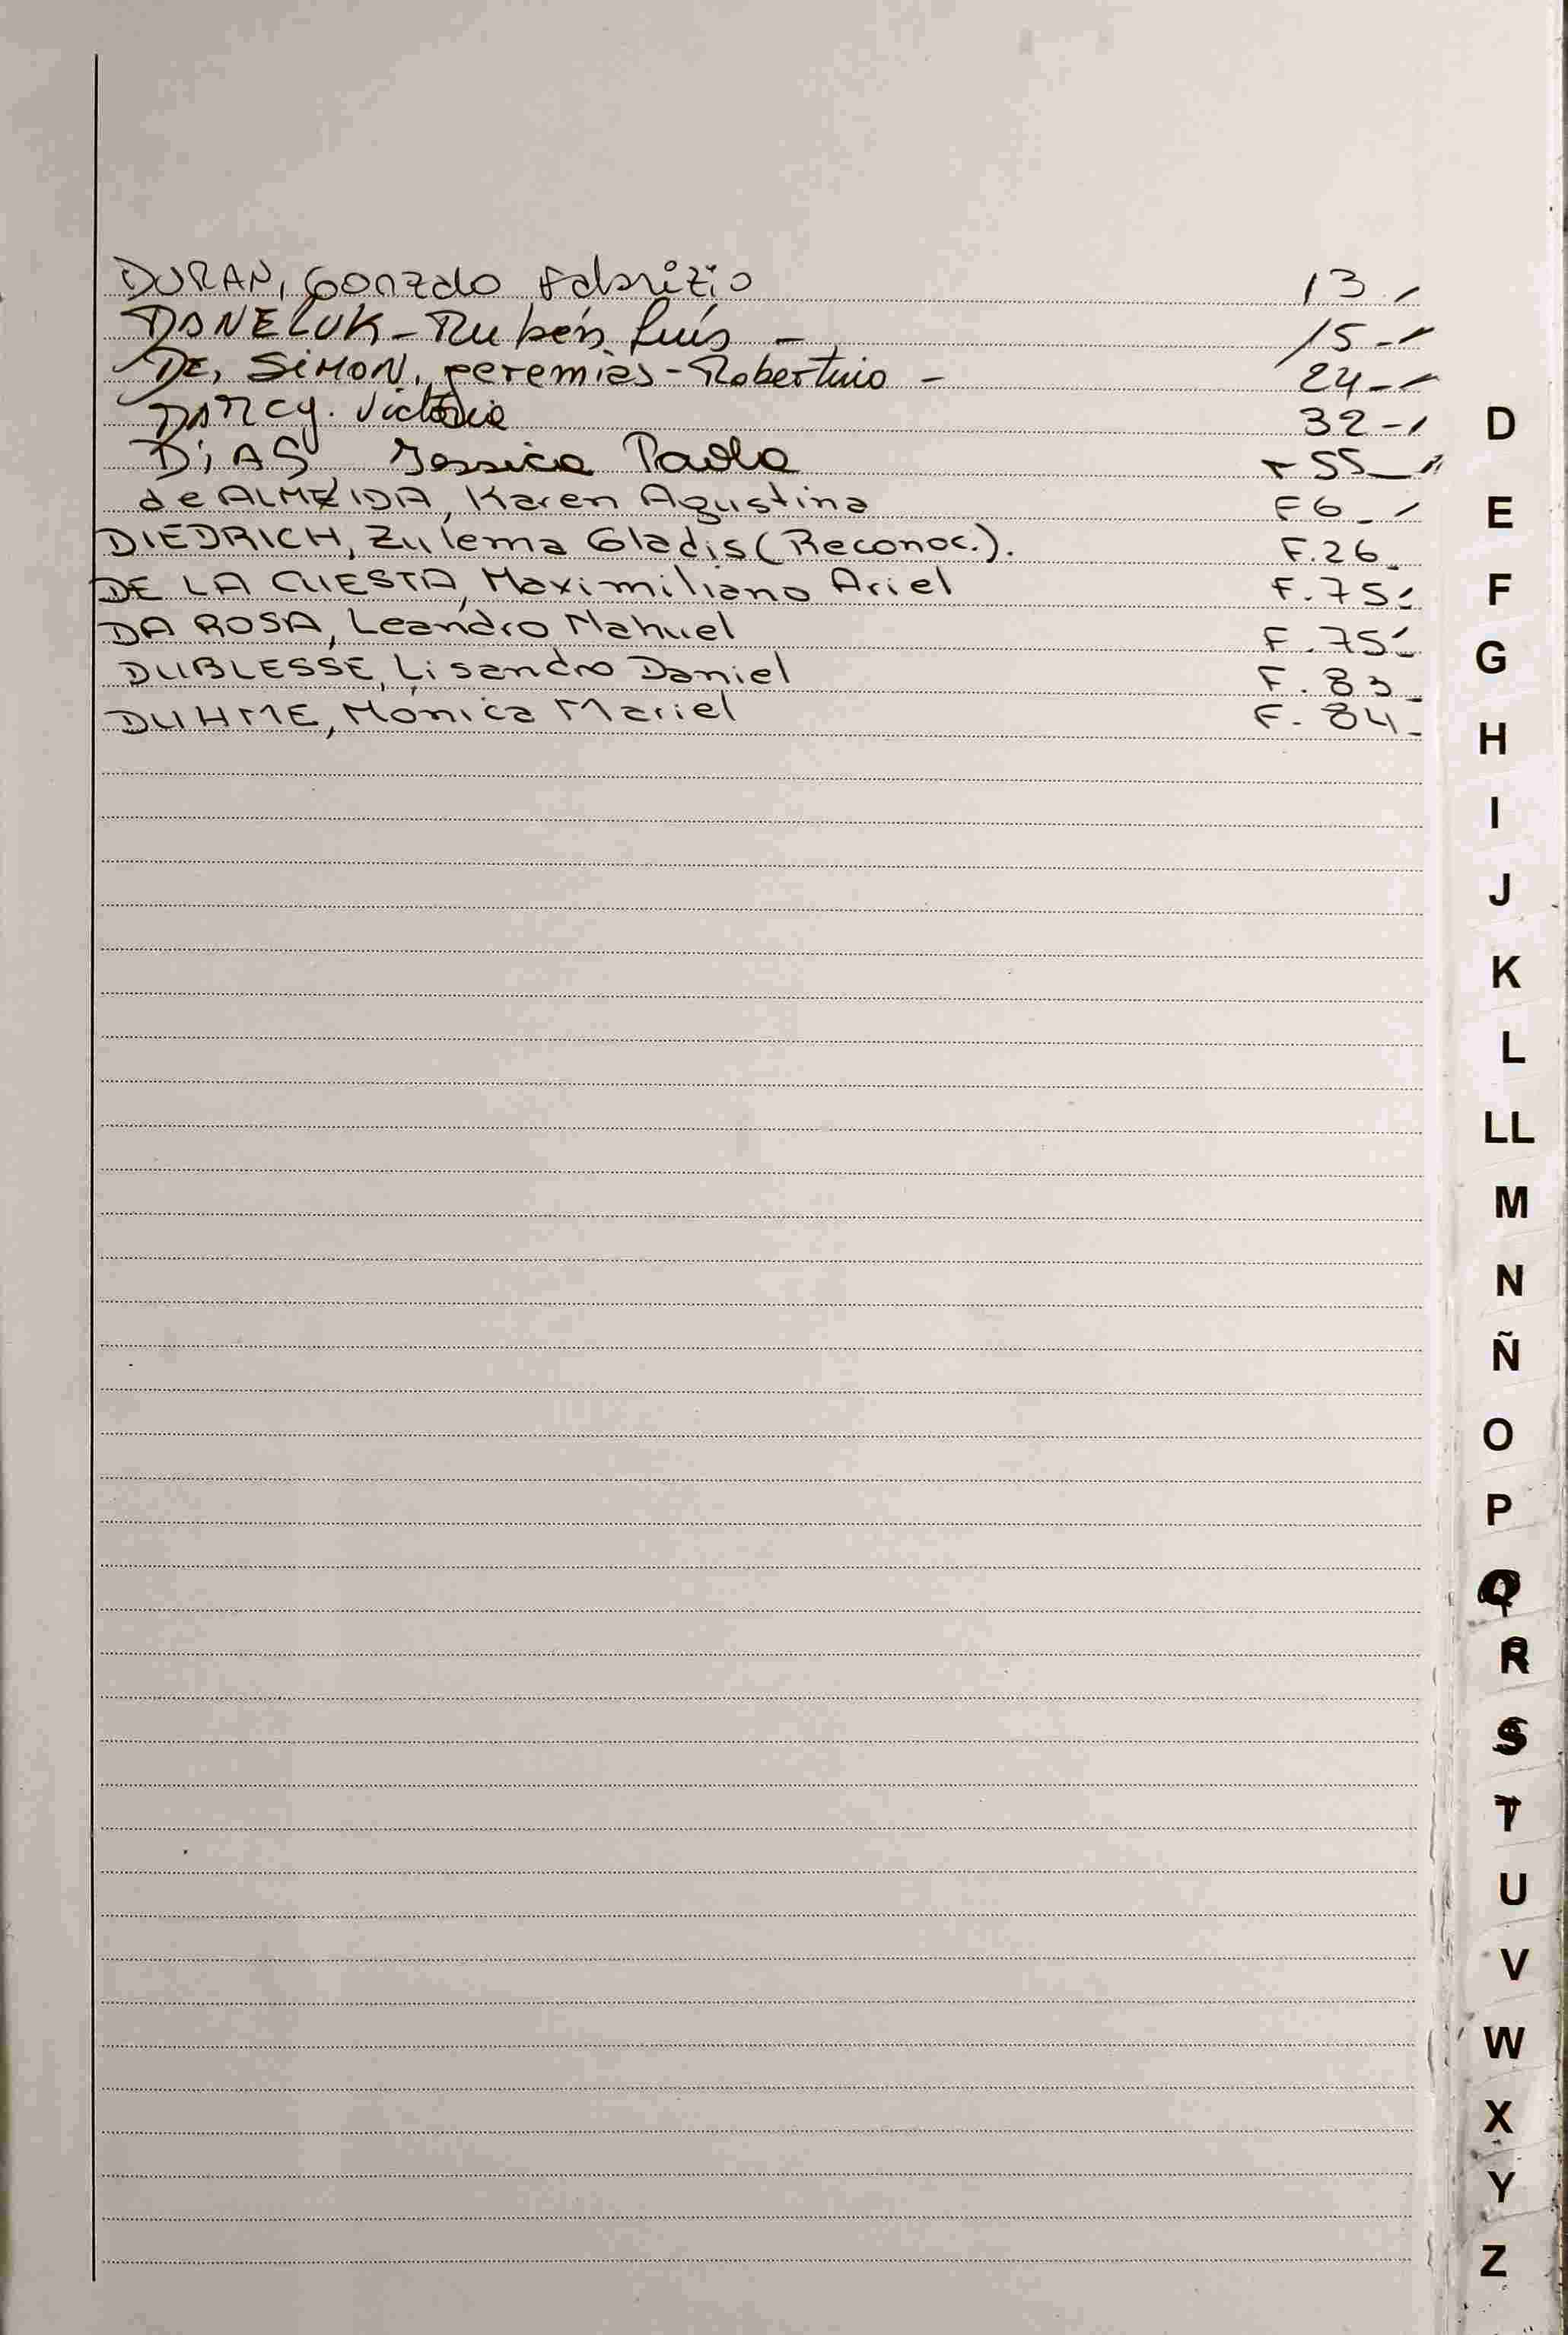 DURAN, Gonzalo Fabrizio 13 -
DANELUK - Rubén Luís - 15 --
DE, SIMON, Jeremias - Robertino - 24 --
DARCY. Victoria 32 --
DiAS Jessica Paola F 55 -
de ALMEIDA, Karen Agustina F 6 -
DIEDRICH, Zulema Gladis (Reconoc.). F. 26 -
DE LA CUESTA, Maximiliano Ariel F. 75 -
DA ROSA, Leandro Nahuel F. 75 -
DUBLESSE, Lisandro Daniel F. 83 -
DUHME, Mónica Mariel F. 84 -
D
E
F
G
H
I
J
K
L
LL
M
N
Ñ
O
P
Q
R
S
T
U
V
W
X
Y
Z